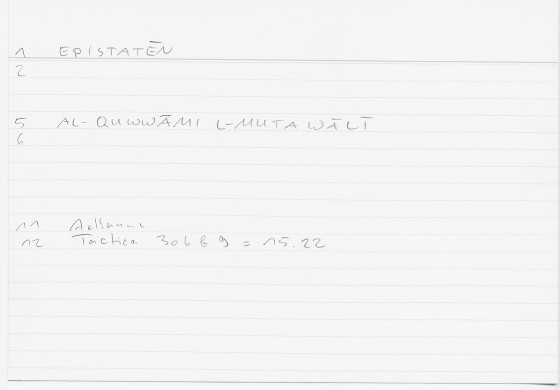 1 EPISTATĒN
2
5 AL-QUWWĀMI L-MUTAWĀLĪ
6
11 Aelianus
12 Tactica 306 B 9 = 15.22